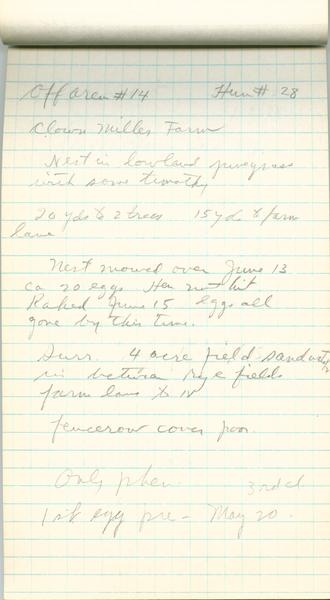 Off area #14 Hen # 28
Clown Miller Farm
Nest in lowland junegrass
with some timothy
20 yds to 2 trees 15 yds to farm
lane
Nest mowed over June 13
ca 20 eggs Hen not hit
Raked June 15 eggs all
gone by this time.
Surr. 4 acre field
in between rye fields
farm lane to W
fencerow cover poor.
Only phea.
3rd cl
1st egg pre- May 20.